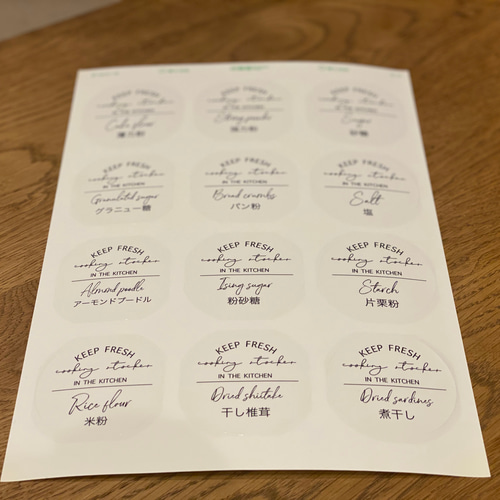 KEEP FRESH
cooking stocker
IN THE KITCHEN
Cake flour
薄力粉
KEEP FRESH
cooking stocker
IN THE KITCHEN
強力粉
KEEP FRESH
cooking stocker
IN THE KITCHEN
Sugar
砂糖
KEEP FRESH
cooking stocker
IN THE KITCHEN
Granulated sugar
グラニュー糖
KEEP FRESH
cooking stocker
IN THE KITCHEN
Bread crumbs
パン粉
KEEP FRESH
cooking stocker
IN THE KITCHEN
Salt
塩
KEEP FRESH
cooking stocker
IN THE KITCHEN
Almond poodle
アーモンドプードル
KEEP FRESH
cooking stocker
IN THE KITCHEN
Ising sugar
粉砂糖
KEEP FRESH
cooking stocker
IN THE KITCHEN
Starch
片栗粉
KEEP FRESH
cooking stocker
IN THE KITCHEN
Rice flour
米粉
KEEP FRESH
cooking stocker
IN THE KITCHEN
Dried shiitake
干し椎茸
KEEP FRESH
cooking stocker
IN THE KITCHEN
Dried sardines
煮干し